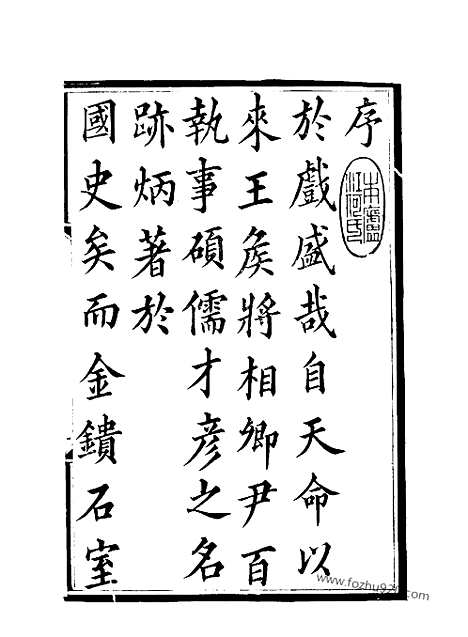 序
於戲盛哉自天命以
來王矦將相卿尹百
執事碩儒才彦之名
跡炳著於
國史矣而金鐀石室
www.fozhu920.com